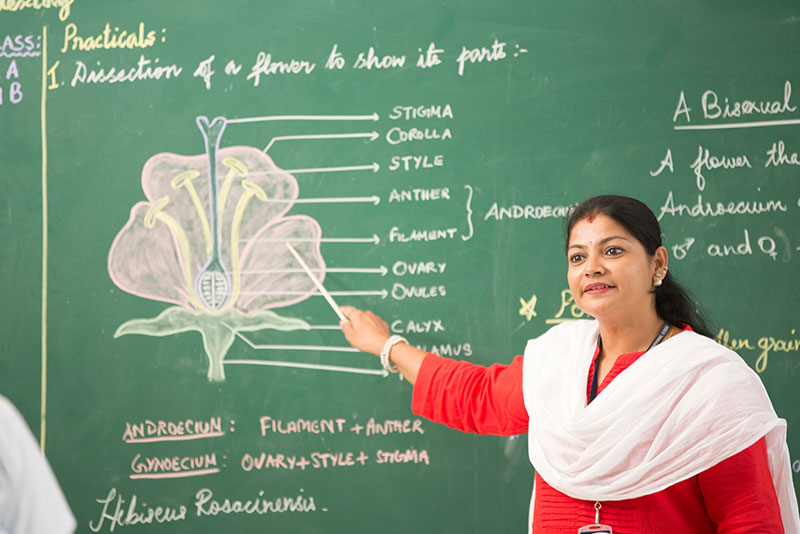 CLASS:
A
B
Practicals:
I. Dissection of a flower to show its parts :-
STIGMA
COROLLA
STYLE
ANTHER
FILAMENT
ANDROECIUM
OVARY
OVULES
CALYX
ANDROECIUM : FILAMENT + ANTHER
GYNOECIUM : OVARY + STYLE + STIGMA
Hibiscus Rosacinensis.
A Bisexual
A flower
Androecium
♂ and ♀